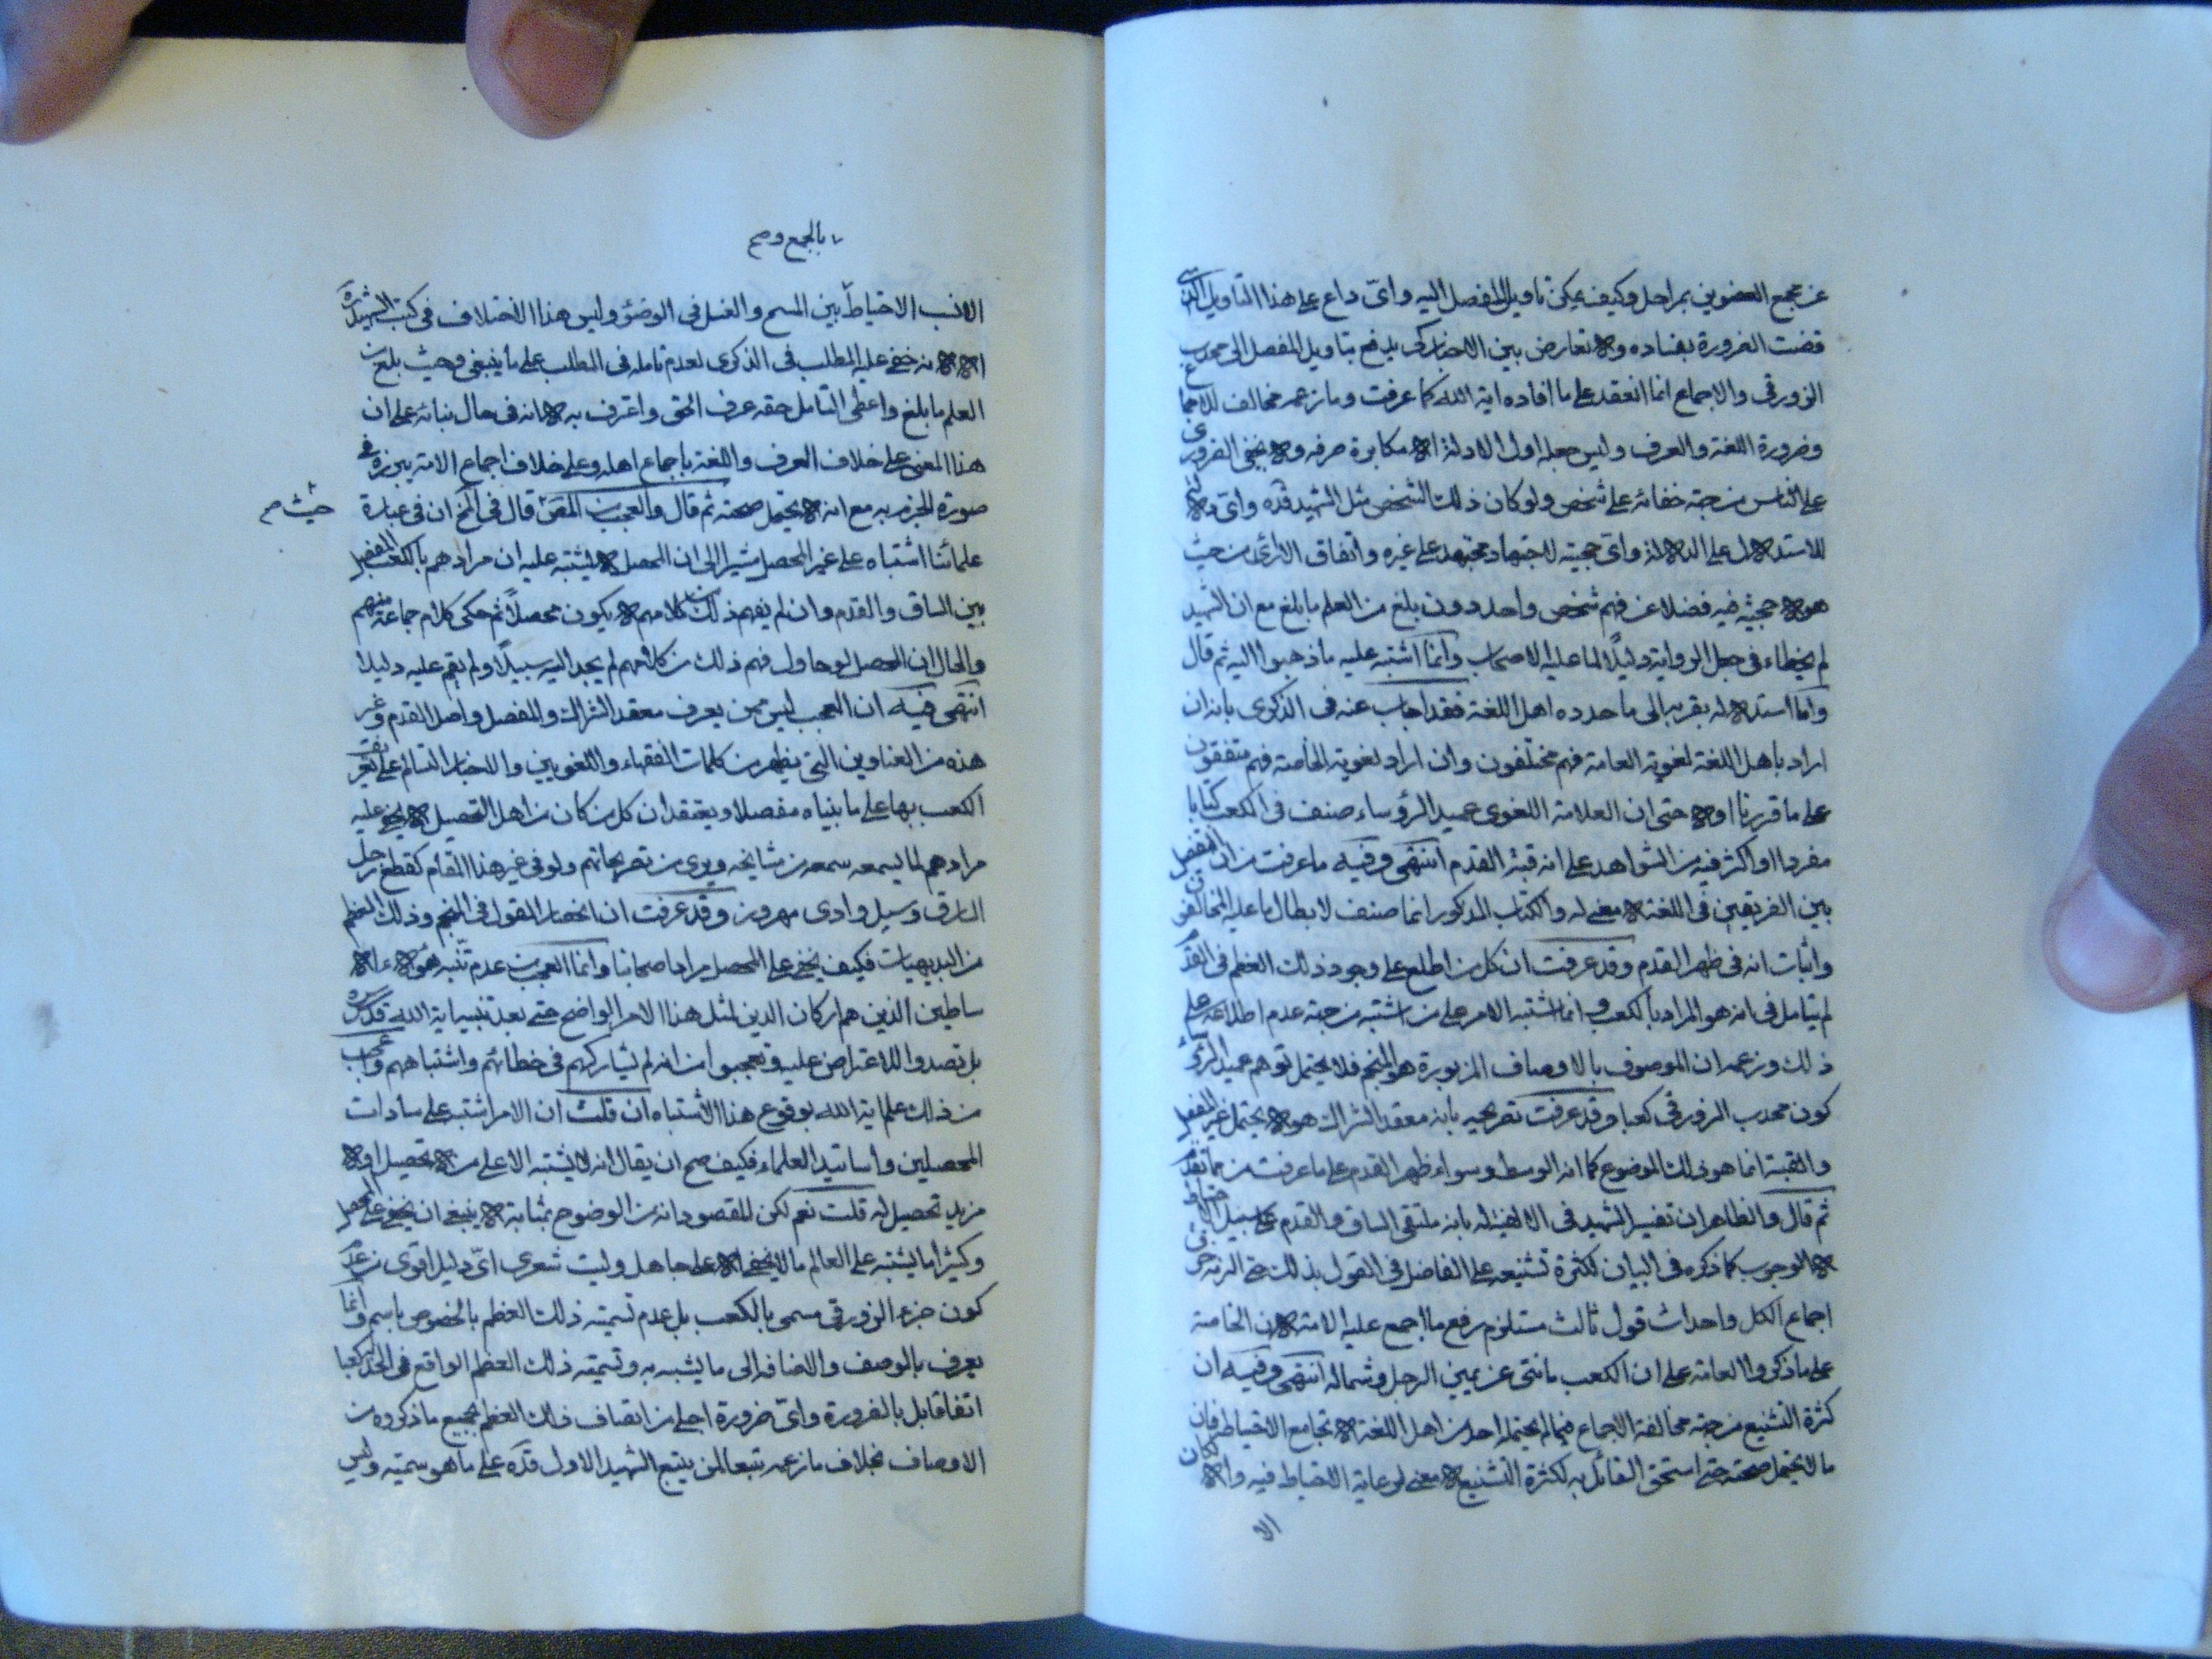 عن مجمع العضوين بمراحل وكيف يمكن تاويل المفصل اليه واىّ داع على هذا التاويل الذى
قضت الضرورة بفساده ولا تعارض بين الاخبار كى يدفع بتاويل المفصل الى محدب
الزورقى والاجماع انما انعقد على ما افاده اية الله كما عرفت وما زعمه مخالف للاجماع
وضرورة اللغة والعرف وليس جعله اول الادلة الا مكابرة صرفه ولا يخفى الضرورى
على الناس من جهة خفائه على شخص ولو كان ذلك الشخص مثل الشهيد قده واىّ
للاستدلال على الدلالة واىّ حجيته لاجتهاد مجتهد على غيره واتفاق الارائ من حيث
هو لا حجية فيه فضلا عن فهم شخص واحد دون بلغ من العلم ما بلغ مع ان الشهيد
لم يخطاء فى جعل الرواية دليلًا لما عليه الاصحاب وانما اشتبه عليه ما ذهبوا اليه ثم قال
واما استدلاله بقربه الى ما حدده اهل اللغة فقد اجاب عنه فى الذكرى بانه ان
اراد باهل اللغة لغوية العامة فهم مختلفون وان اراد لغوية الخاصة فهم متفقون
على ما قررناه اولا حتى ان العلامة اللغوى عميد الرؤساء صنف فى الكعب كتابا
مفردا واكثر فيه من الشواهد على انه قبة القدم انتهى وفيه ما عرفت من ان التفصيل
بين الفريقين فى اللغة لا معنى له والكتاب المذكور انما صنف لابطال ما عليه المخالفون
واثبات انه فى ظهر القدم وقد عرفت ان كل من اطلع على وجود ذلك العظم فى القدم
لم يتامل فى انه هو المراد بالكعب وانما اشتبه الامر على من اشتبه من جهة عدم اطلاعه على
ذلك وزعمه ان الموصوف بالاوصاف المزبورة هو المنجم فلا يحتمل توهم عميد الرؤساء
كون محدب الزورقى كعبا وقد عرفت تصريحه بانه معقد الشراك هو لا يحتمل غير المفصل
والقبة انما هو ذلك الموضوع كما انه الوسط وسواء ظهر القدم على ما عرفت من ما تقدم
ثم قال والظاهر ان تفسير الشهيد فى الالفية له بانه ملتقى الساق والقدم على سبيل الاحتياط
لا الوجوب كما ذكره فى البيان لكثرة تشنيعه على الفاضل فى القول بذلك حتى الزمه خرق
اجماع الكل واحداث قول ثالث مستلزم رفع ما اجمع عليه الامة لان الخاصة
على ما ذكر والعامة على ان الكعب ما نتى عن يمين الرجل وشماله انتهى وفيه ان
كثرة التشنيع من جهة مخالفة الاجماع فيما لم يحتمله احد من اهل اللغة لا تجامع الاحتياط فان
ما لا يحتمل صحته حتى استحق القائل به لكثرة التشنيع لا معنى لرعاية الاحتياط فيه والا لكان
الا
بالجمع و صح
الانسب الاحتياط بين المسح والغسل فى الوضوء وليس هذا الاختلاف فى كتب الشهيد قده
الا لانه خفى عليه المطلب فى الذكرى لعدم تامله فى المطلب على ما ينبغى وحيث بلغ من
العلم ما بلغ واعطى التامل حقه عرف الحق واعترف به لا انه فى حال بنائه على ان
هذا المعنى على خلاف العرف واللغة باجماع اهله وعلى خلاف اجماع الامة يبرزه فى
صورة الجزم به مع انه لا يحتمل صحته ثم قال والعجب من المص قال فى المخ ان فى عبارة
حيث صح
علمائنا اشتباه على غير المحصل مشيرا الى ان المحصل لا يشتبه عليه ان مرادهم بالكعب المفصل
بين الساق والقدم وان لم يفهم ذلك من كلامهم لا يكون محصلًا ثم حكى كلام جماعة منهم
والحال ان المحصل لو حاول فهم ذلك من كلامهم لم يجد اليه سبيلًا ولم يقم عليه دليلا
انتهى فيه ان العجب ليس ممن يعرف معقد الشراك والمفصل واصل القدم وغير
هذه من العناوين التى يظهر من كلمات الفقهاء واللغويين والاخبار التسالم على تعريف
الكعب بها على ما بنياه مفصلا ويعتقد ان كل من كان من اهل التحصيل لا يخفى عليه
مرادهم لما يسمعه سمعه من مشايخه ويرى من تصريحاتهم ولو فى غير هذا المقام كقطع رجل
السارق وسيل وادى مهروز وقد عرفت ان انحصار القول فى المنجم وذلك العظم
من البديهيات فكيف يخفى على المحصل مراد اصحابنا وانما العجب من عدم تنبه هؤلاء الا
ساطين الذين هم اركان الدين لمثل هذا الامر الواضح حتى بعد تنبيه اية الله قدس سره
بل تصدوا للاعتراض عليه وتعجبوا من انه لم يشاركهم فى خطائهم واشتباههم واعجب
من ذلك علم اية الله بوقوع هذا الاشتباه ان قلت ان الامر اشتبه على سادات
المحصلين واساتيد العلماء فكيف صح ان يقال انه لا يشتبه الا على من لا تحصيل او لا
مزيد تحصيل له قلت نعم لكن المقصود انه من الوضوح بمثابة لا ينبغى ان يخفى على المحصل
وكثيرا ما يشتبه على العالم ما لا يخفى الا على جاهل وليت شعرى اىّ دليل اقوى من عدم
كون جزء الزورقى مسمى بالكعب بل عدم تسميته ذلك العظم بالخصوص باسم وانما
يعرف بالوصف والاضافة الى ما يشبه به وتسميته ذلك العظم الواقع فى كعبا
اتفاقا بل بالضرورة واىّ ضرورة اجلى من اتصاف ذلك العظم بجميع ما ذكروه من
الاوصاف بخلاف ما زعمه تبعا لمن يتبع الشهيد الاول قده على ما هو سميته وليس